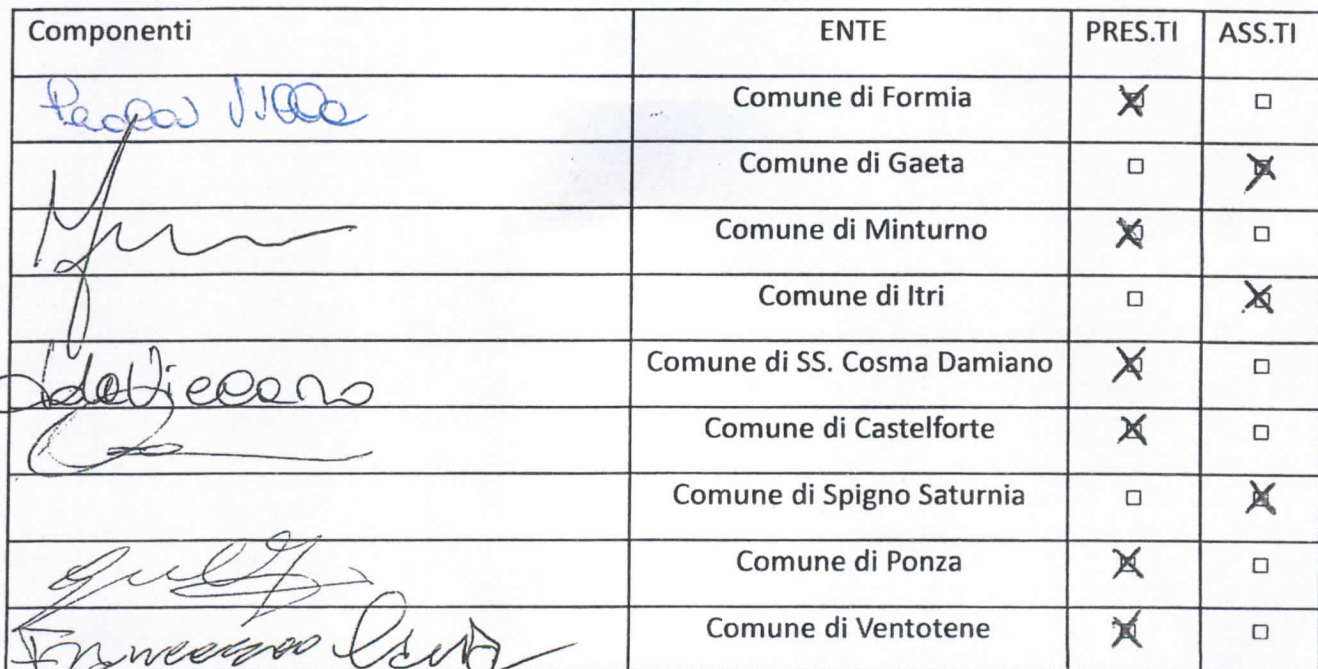 Componenti ENTE PRES.TI ASS.TI
Paola Villa Comune di Formia ☒ ☐
Comune di Gaeta ☐ ☒
Comune di Minturno ☒ ☐
Comune di Itri ☐ ☒
Comune di SS. Cosma Damiano ☒ ☐
Comune di Castelforte ☒ ☐
Comune di Spigno Saturnia ☐ ☒
Comune di Ponza ☒ ☐
Comune di Ventotene ☒ ☐